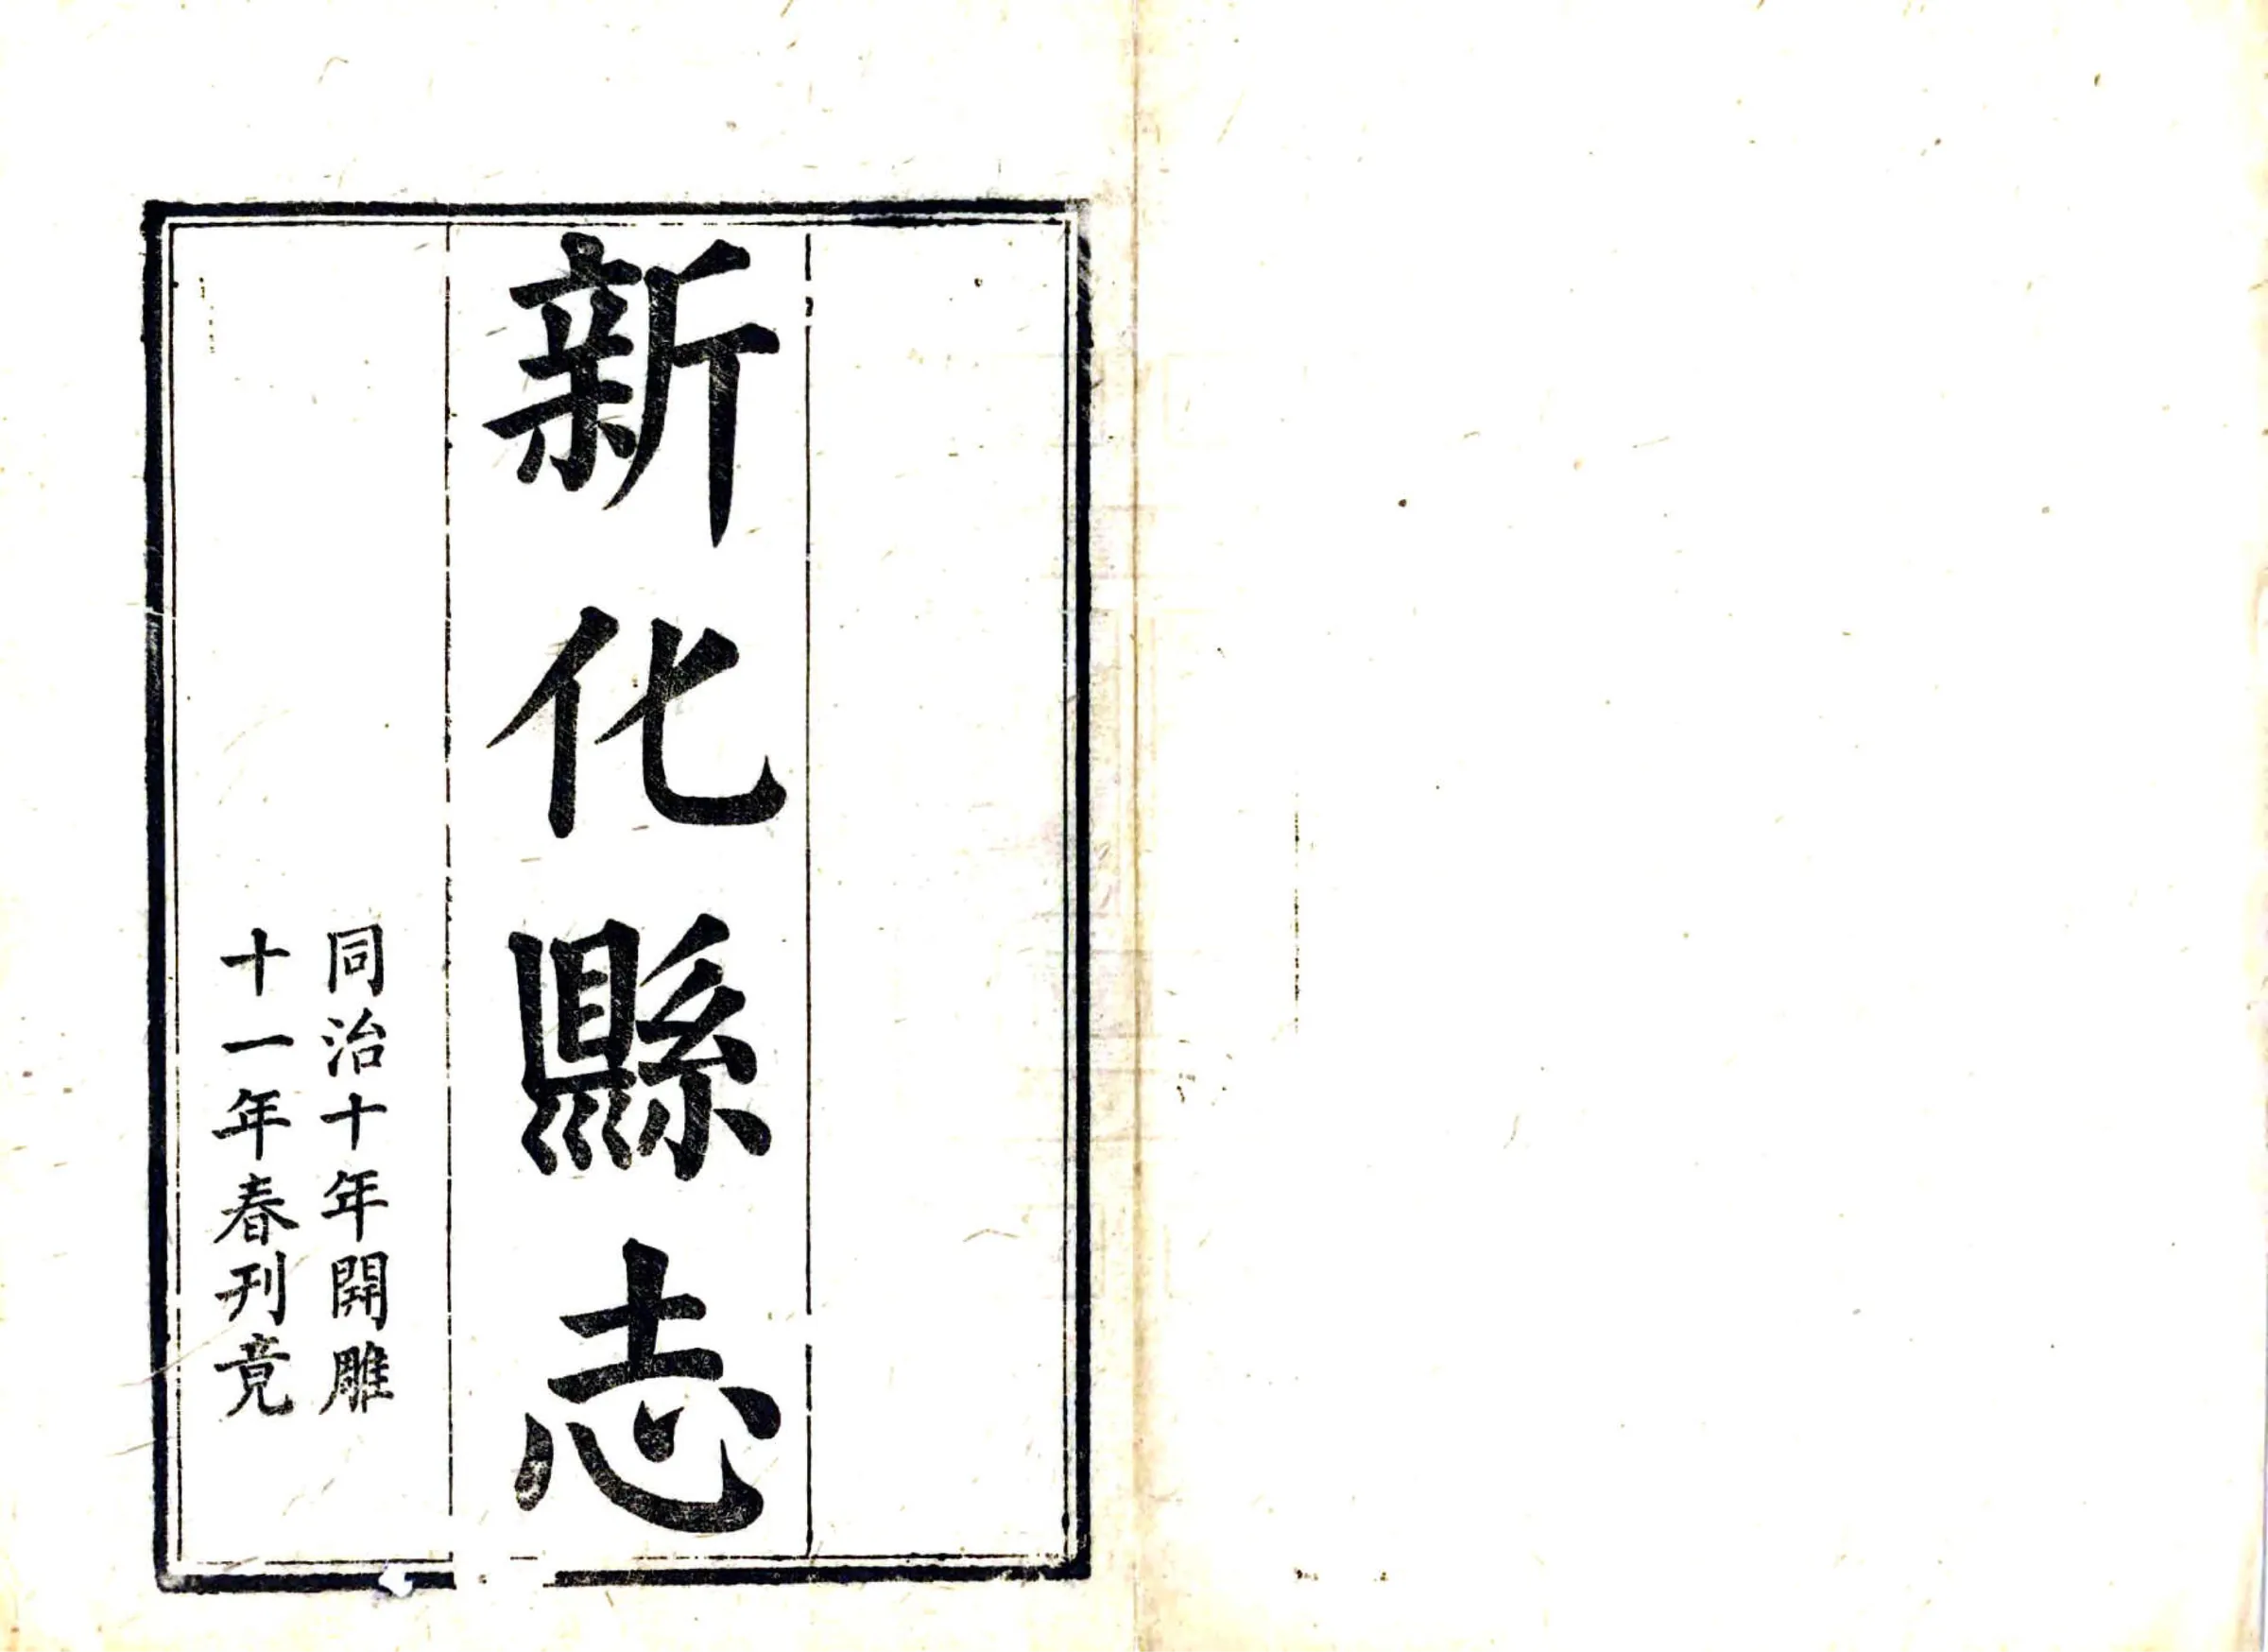 新化縣志
同治十年開雕
十一年春刊竟